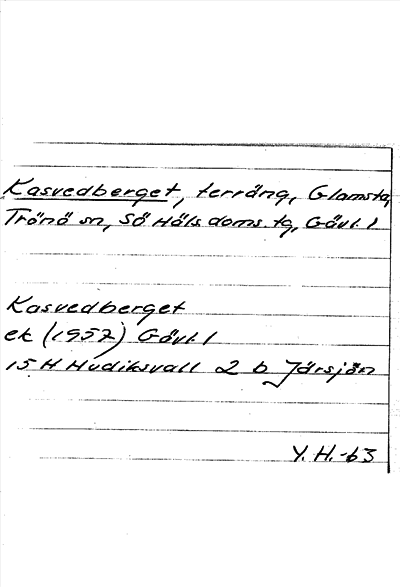 Kasvedberget, terräng, Glamsta,
Trönö sn, Sö Häls doms. tg, Gävl. l
Kasvedberget
ek (1957) Gävl. l
15 H Hudiksvall 2 b Järsjön
Y. H. -63